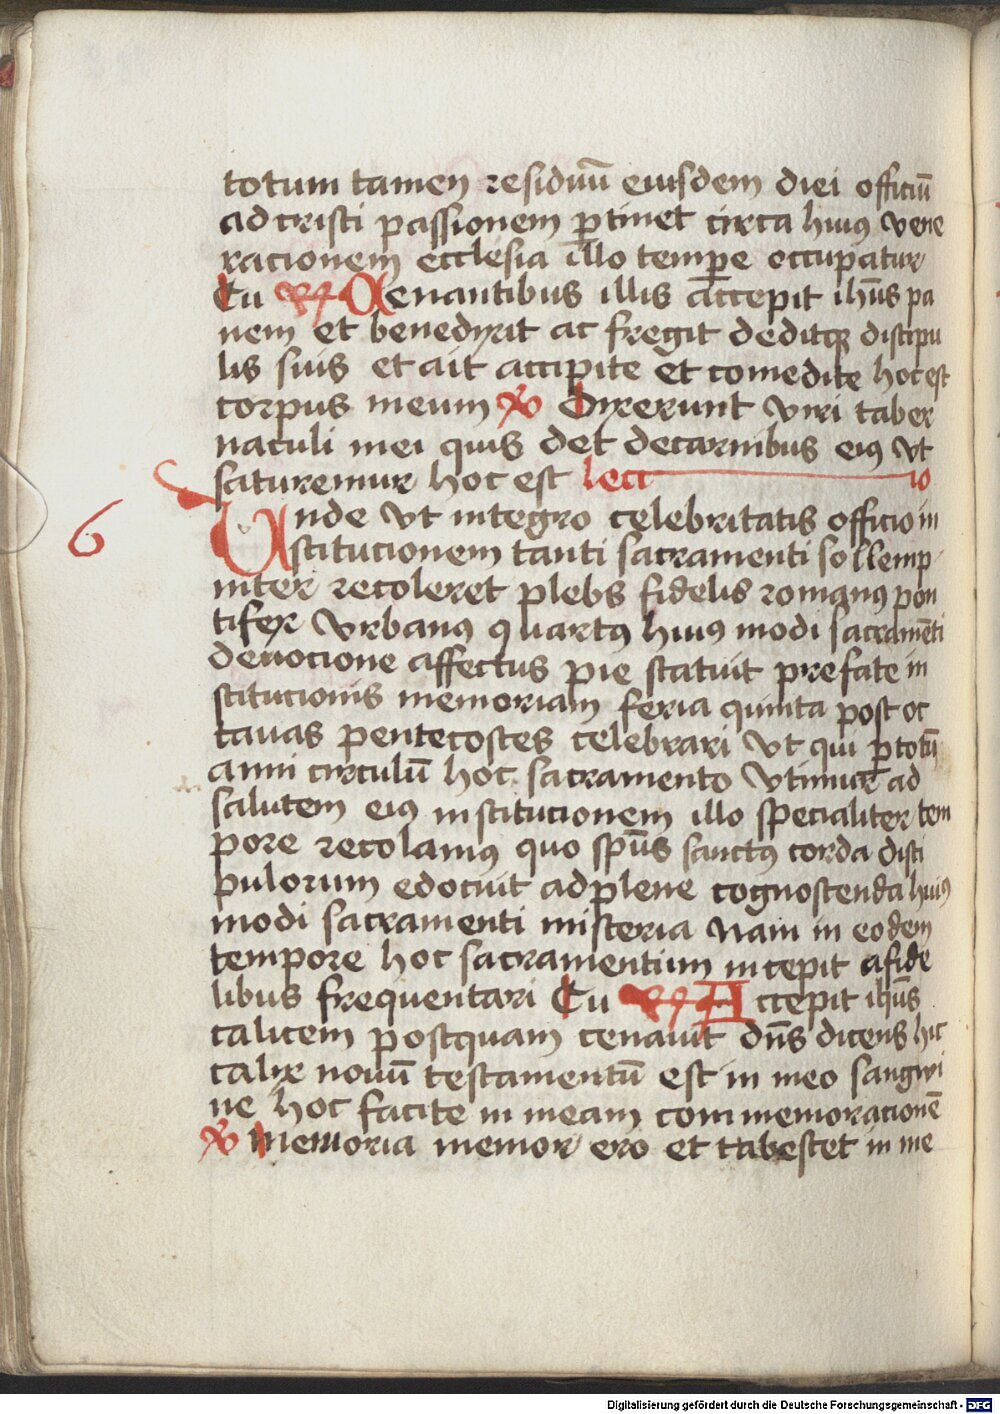 totum tamen residuū eiusdem diei officiū
ad cristi passionem ꝑtinet circa huiꝰ vene
racionem ecclesia illo temꝑe occupatur
Tu R̃ Cenantibus illis accepit ihūs pa
nem et benedyxit ac fregit deditqꝫ discipu
lis suis et ait accipite et comedite hoc est
corpus meum V̷ Dixerunt viri taber
naculi mei quis det de carnibus eiꝰ vt
saturemur hoc est lectio
6 Unde vt integro celebritatis officio in
stitucionem tanti sacramenti sollemp
niter recoleret plebs fidelis romanꝰ pon
tifex vrbanꝰ quartꝰ huiꝰ modi sacramēti
deuocione affectus pie statuit prefate in
stitucionis memoriam feria quinta post oc
tauas pentecostes celebrari vt qui ꝑ totū
anni circulū hoc sacramento vtimur ad
salutem eiꝰ institucionem illo specialiter tem
pore recolamꝰ quo spūs sanctꝰ corda disci
pulorum edocuit ad plene cognoscenda huiꝰ
modi sacramenti misteria Nam in eodem
tempore hoc sacramentum incepit a fide
libus frequentari Tu R̃ Accepit ihūs
calicem postquam cenauit dn̄s dicens hic
calix nouū testamentū est in meo sangwi
ne hoc facite in meam commemoracionē
V̷ Memoria memor ero et tabescet in me
Digitalisierung gefördert durch die Deutsche Forschungsgemeinschaft - DFG